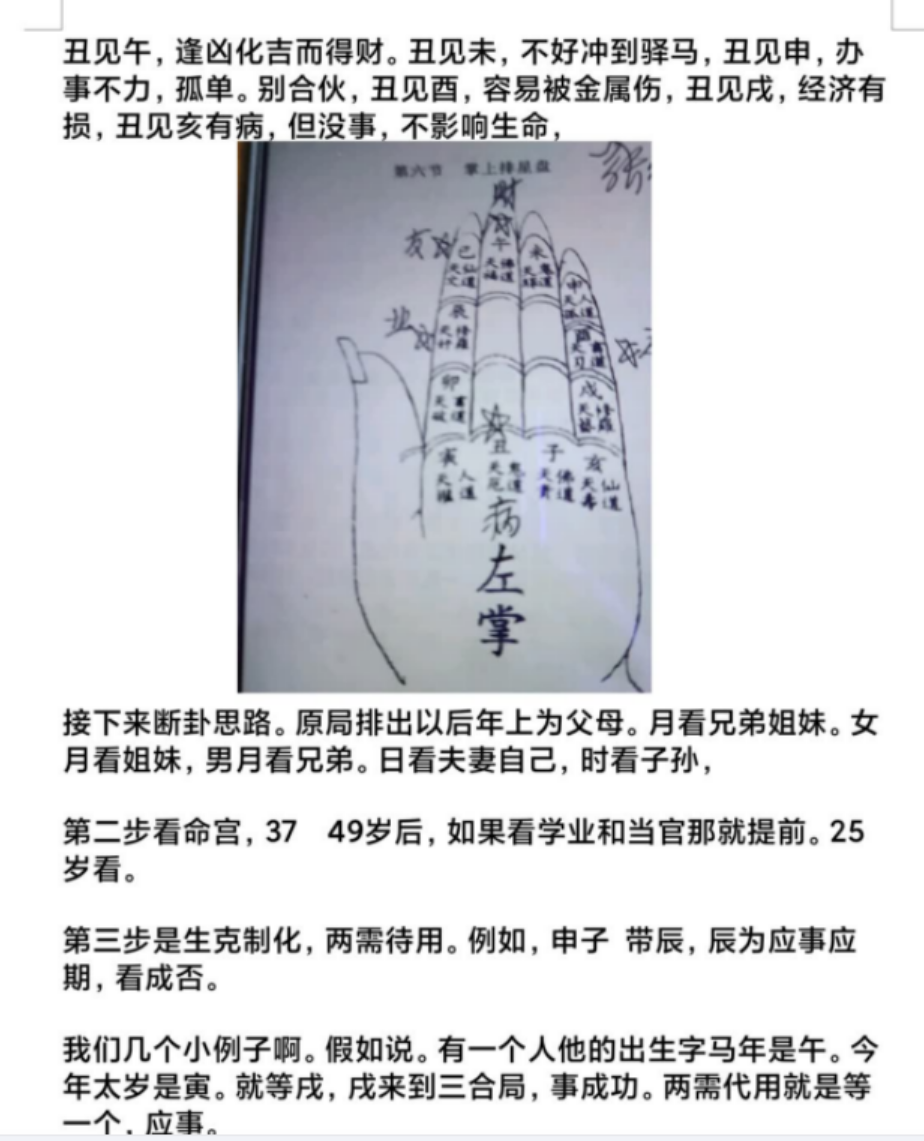 丑见午，逢凶化吉而得财。丑见未，不好冲到驿马，丑见申，办
事不力，孤单。别合伙，丑见酉，容易被金属伤，丑见戌，经济有
损，丑见亥有病，但没事，不影响生命，
第六节 掌上排星盘
财
友
巳
天文 仙道
午
天福 佛道
未
天驿 鬼道
申
天孤 人道
业
辰
天奸 修罗
酉
天刃 畜道
卯
天破 畜道
戌
天艺 修罗
寅
天权 人道
丑
天厄 鬼道
子
天贵 佛道
亥
天寿 仙道
病
左
掌
接下来断卦思路。原局排出以后年上为父母。月看兄弟姐妹。女
月看姐妹，男月看兄弟。日看夫妻自己，时看子孙，
第二步看命宫，37 49岁后，如果看学业和当官那就提前。25
岁看。
第三步是生克制化，两需待用。例如，申子 带辰，辰为应事应
期，看成否。
我们几个小例子啊。假如说。有一个人他的出生字马年是午。今
年太岁是寅。就等戌，戌来到三合局，事成功。两需代用就是等
一个，应事。